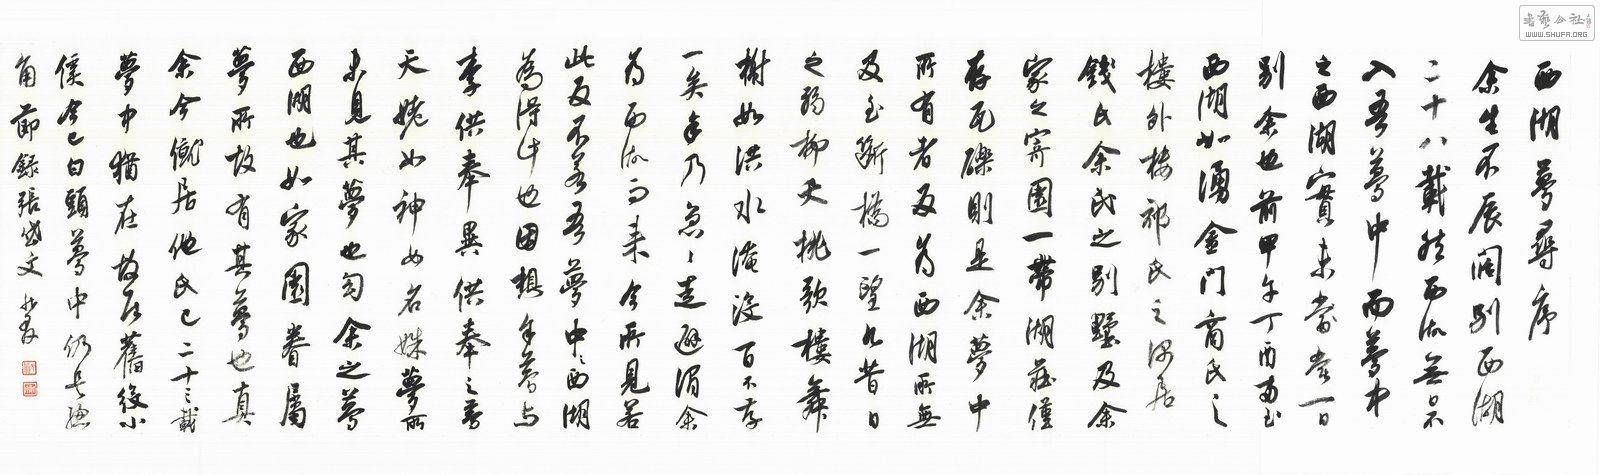 西湖夢尋序
余生不辰闊別西湖
二十八載然西湖無日不
入吾夢中而夢中
之西湖實未嘗一日
別余也前甲午丁酉兩至
西湖如湧金門商氏之
樓外樓祁氏之偶居
錢氏余氏之別墅及余
家之寄園一帶湖莊僅
存瓦礫則是余夢中
所有者反為西湖所無
及至斷橋一望凡昔日
之弱柳夭桃歌樓舞
榭如洪水淹沒百不存
一矣余乃急々走避謂余
為西湖而來今所見若
此反不若吾夢中之西湖
為得計也因想余夢與
李供奉異供奉之夢
天姥如神女名姝夢所
未見其夢也幻余之夢
西湖也如家園眷屬
夢所故有其夢也真
余今僦居他氏已二十三載
夢中猶在故居舊役小
傒今已白頭夢中仍是總
角 節錄張岱文
書藝公社
WWW.SHUFA.ORG